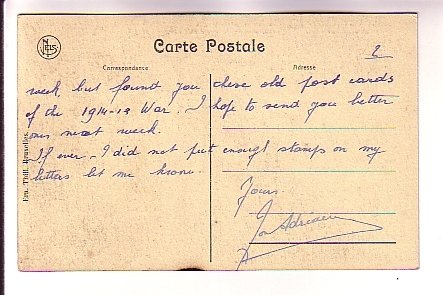 NELS
Carte Postale
Correspondance
Adresse
2
week but found you these old post cards
of the 1914-18 War. I hope to send you better
ones next week.
If ever I did not put enough stamps on my
letters let me know.
Yours.
Ern. Thill, Bruxelles.